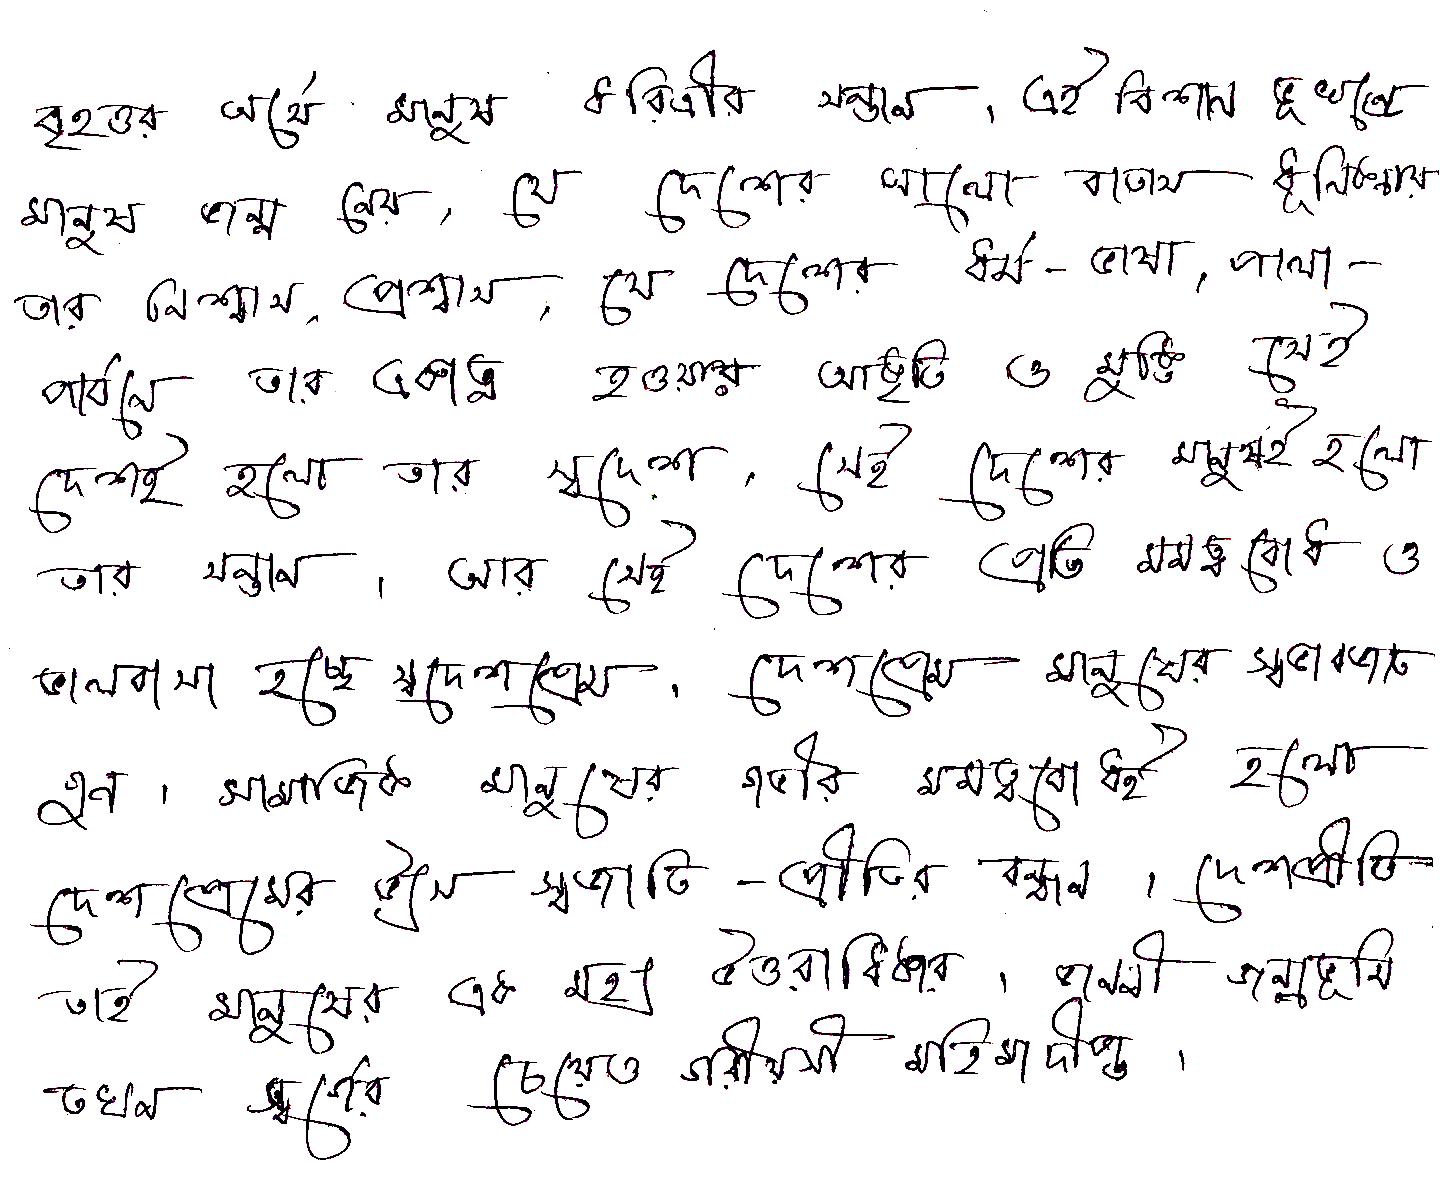 বৃহত্তর অর্থে মানুষ ধরিত্রীর সন্তান । এই বিশাল ভূখন্ডে
মানুষ জন্ম নেয়, যে দেশের আলো বাতাস ধূলিকনায়
তার নিশ্বাস, প্রেশ্বাস, যে দেশের ধর্ম - ভাষা, পালা -
পার্বনে তার একাত্ম হওয়ার আকুতি ও মুক্তি সেই
দেশই হলো তার স্বদেশ, সেই দেশের মানুষই হলো
তার সন্তান । আর সেই দেশের প্রতি মমত্ববোধ ও
ভালবাসা হচ্ছে স্বদেশপ্রেম । দেশপ্রেম মানুষের স্বভাবজাত
গুন । সামাজিক মানুষের গভীর মমত্ববোধই হলো
দেশপ্রেমের উৎস স্বজাতি - প্রীতির বন্ধন । দেশপ্রীতি
তাই মানুষের এক মহৎ উত্তরাধিকার । জননী জন্মভূমি
তখন স্বর্গের চেয়েও গরীয়সী মহিমাদীপ্ত ।